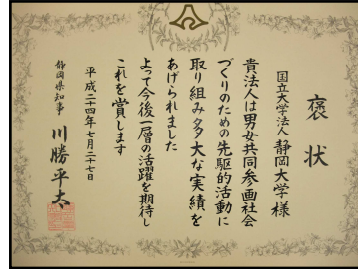 褒状
国立大学法人 静岡大学 様
貴法人は男女共同参画社会
づくりのための先駆的活動に
取り組み多大な実績を
あげられました
よって今後一層の活躍を期待し
これを賞します
平成二十四年七月二十七日
静岡県知事 川勝平太